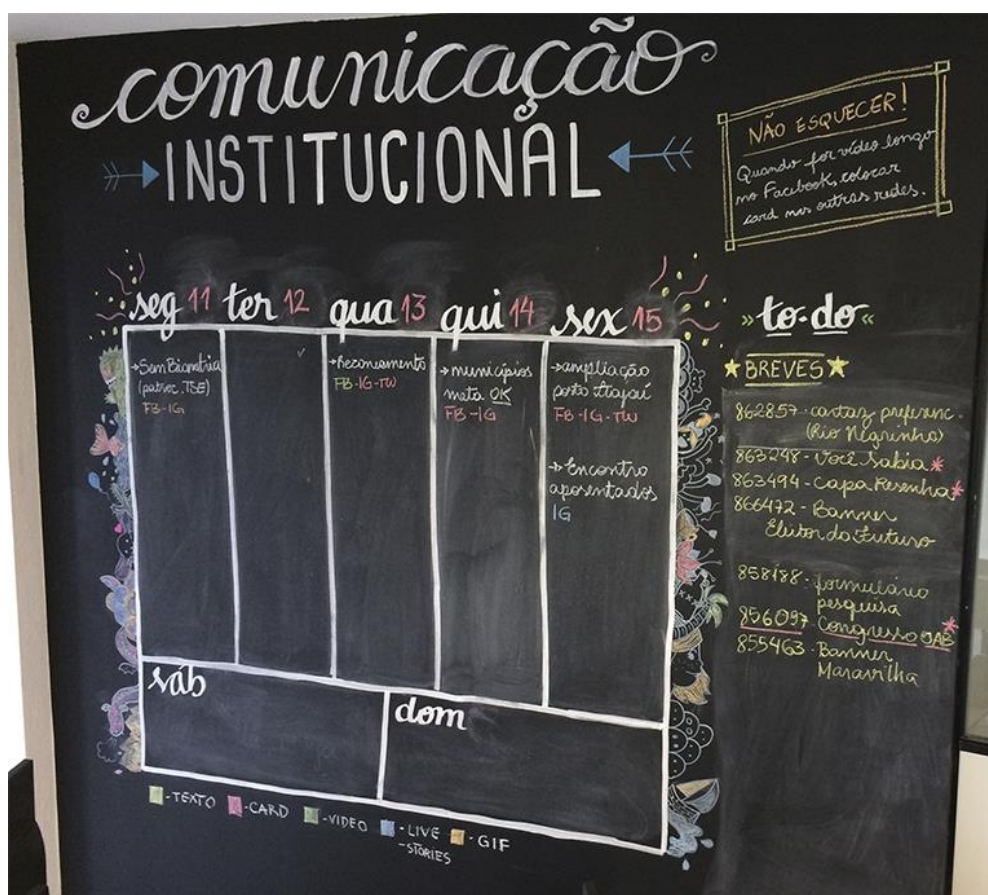 comunicação
INSTITUCIONAL
NÃO ESQUECER!
Quando for vídeo longo
no Facebook, colocar
card nas outras redes.
seg 11 ter 12 qua 13 qui 14 sex 15
→Sem Biometria
(patroc. TSE)
FB-IG
→Rezoneamento
FB-IG-TW
→municípios
meta OK
FB-IG
→ampliação
porto Itajaí
FB-IG-TW
→Encontro
aposentados
IG
sáb
dom
-TEXTO -CARD -VIDEO -LIVE -GIF
-STORIES
» to-do «
★BREVES★
862857-cartaz preferenc-
(Rio Negrinho)
863248-Você Sabia*
863494-Capa Resenha*
866472-Banner
Eleitor do Futuro
858188-formulário
pesquisa
856097-Congresso OAB*
855463-Banner
Maravilha